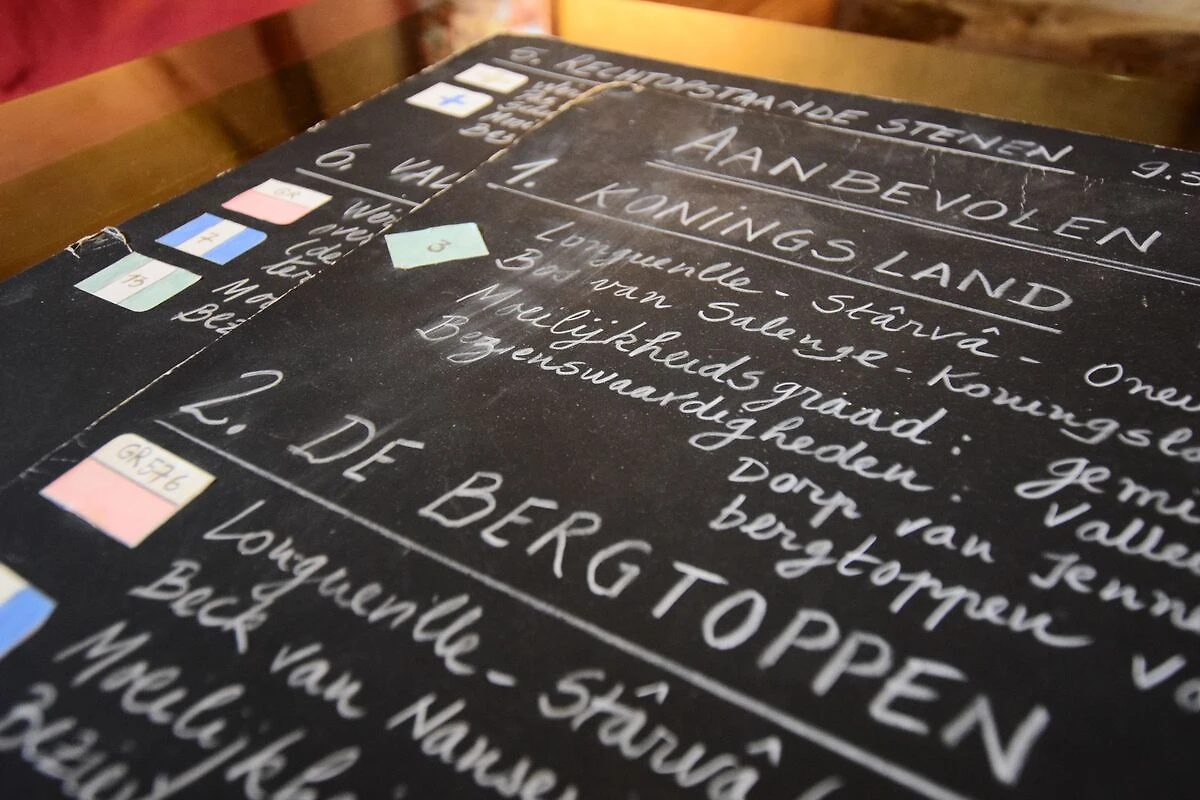 5. RECHTOPSTAANDE STENEN
9.3
6. VAL
GR
7
15
AANBEVOLEN
1. KONINGSLAND
3
Longueville - Stârvâ -
Bos van Salenge - Koningslo
Moeilijkheidsgraad: gemi
Bezienswaardigheden: Valle
Dorp van Jenn
bergtoppen
2. DE BERGTOPPEN
GR576
Longueville - Stârvâ
Beck van
Moeilijkhe
Bezien